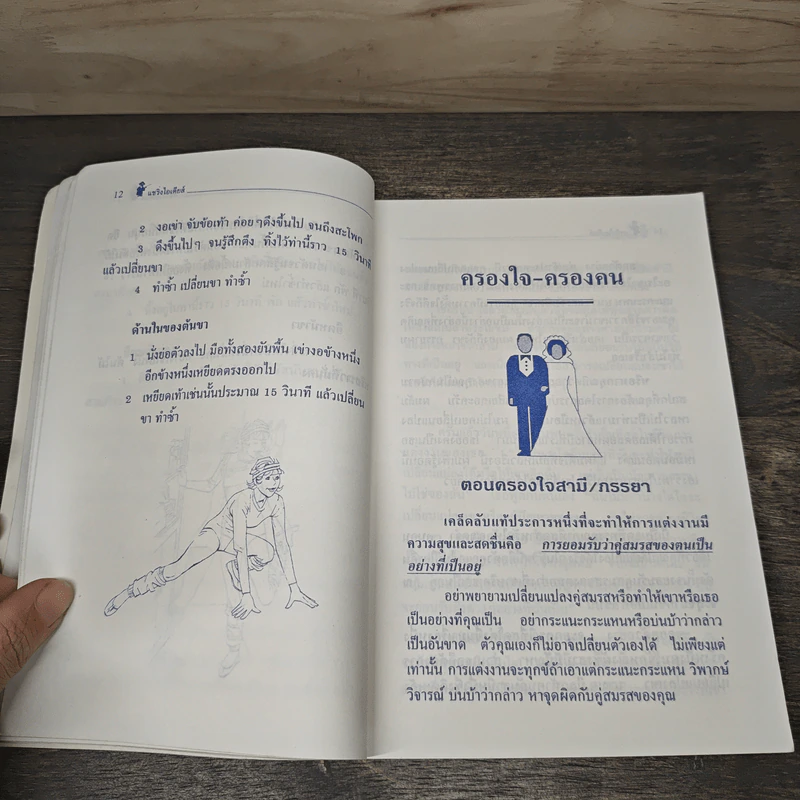 12 แชริงไอเดียส์
2 งอเข่า จับข้อเท้า ค่อยๆดึงขึ้นไป จนถึงสะโพก
3 ดึงขึ้นไปๆ จนรู้สึกตึง ทิ้งไว้ท่านี้ราว 15 วินาที
แล้วเปลี่ยนขา
4 ทำซ้ำ เปลี่ยนขา ทำซ้ำ
ด้านในของต้นขา
1 นั่งย่อตัวลงไป มือทั้งสองยันพื้น เข่างอข้างหนึ่ง
อีกข้างหนึ่งเหยียดตรงออกไป
2 เหยียดเท้าเช่นนั้นประมาณ 15 วินาที แล้วเปลี่ยน
ขา ทำซ้ำ
ครองใจ-ครองคน
ตอนครองใจสามี/ภรรยา
เคล็ดลับแท้ประการหนึ่งที่จะทำให้การแต่งงานมี
ความสุขและสดชื่นคือ การยอมรับว่าคู่สมรสของตนเป็น
อย่างที่เป็นอยู่
อย่าพยายามเปลี่ยนแปลงคู่สมรสหรือทำให้เขาหรือเธอ
เป็นอย่างที่คุณเป็น อย่ากระแนะกระแหนหรือบ่นบ้าว่ากล่าว
เป็นอันขาด ตัวคุณเองก็ไม่อาจเปลี่ยนตัวเองได้ ไม่เพียงแต่
เท่านั้น การแต่งงานจะทุกข์ถ้าเอาแต่กระแนะกระแหน วิพากษ์
วิจารณ์ บ่นบ้าว่ากล่าว หาจุดผิดกับคู่สมรสของคุณ